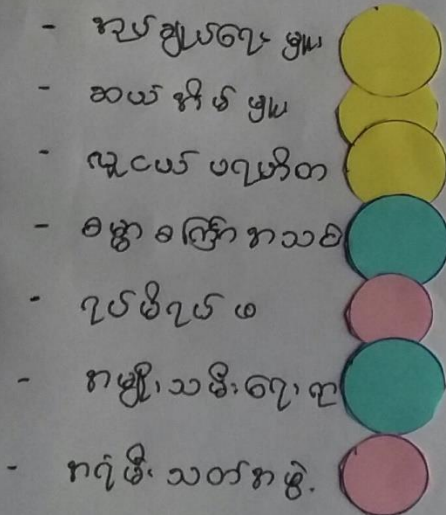 - အုပ်ချုပ်ရေး မှူး
- ဆယ် အိမ် မှူး
- လူငယ် ပရဟိတ
- စမ္ပာ စကြာ အသစ်
- ရပ်မိရပ်ဖ
- အမျိုးသမီးရေးရာ
- အရံမီးသတ်အဖွဲ့.